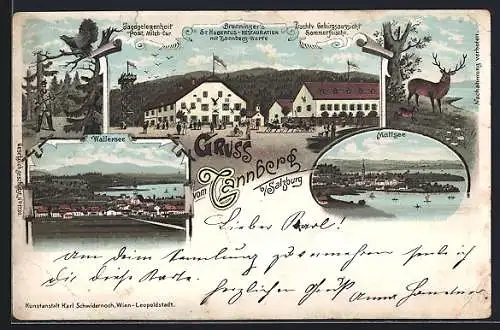 Jagdgelegenheit
Post, Milch-Cur.
Brenninger's
St HUBERTUS-RESTAURATION
mit Tannberg-Warte
Prachtv. Gebirgsaussicht
Sommerfrische
Nachahmung verboten.
Wallersee
Mattsee
Gruss
vom Tannberg
b/Salzburg
Lieber Karl!
Um dein Sammlung zu vermehren sende ich
dir diese Karte. Herzlichen Gruß Anna
Kunstanstalt Karl Schwidernoch, Wien-Leopoldstadt.